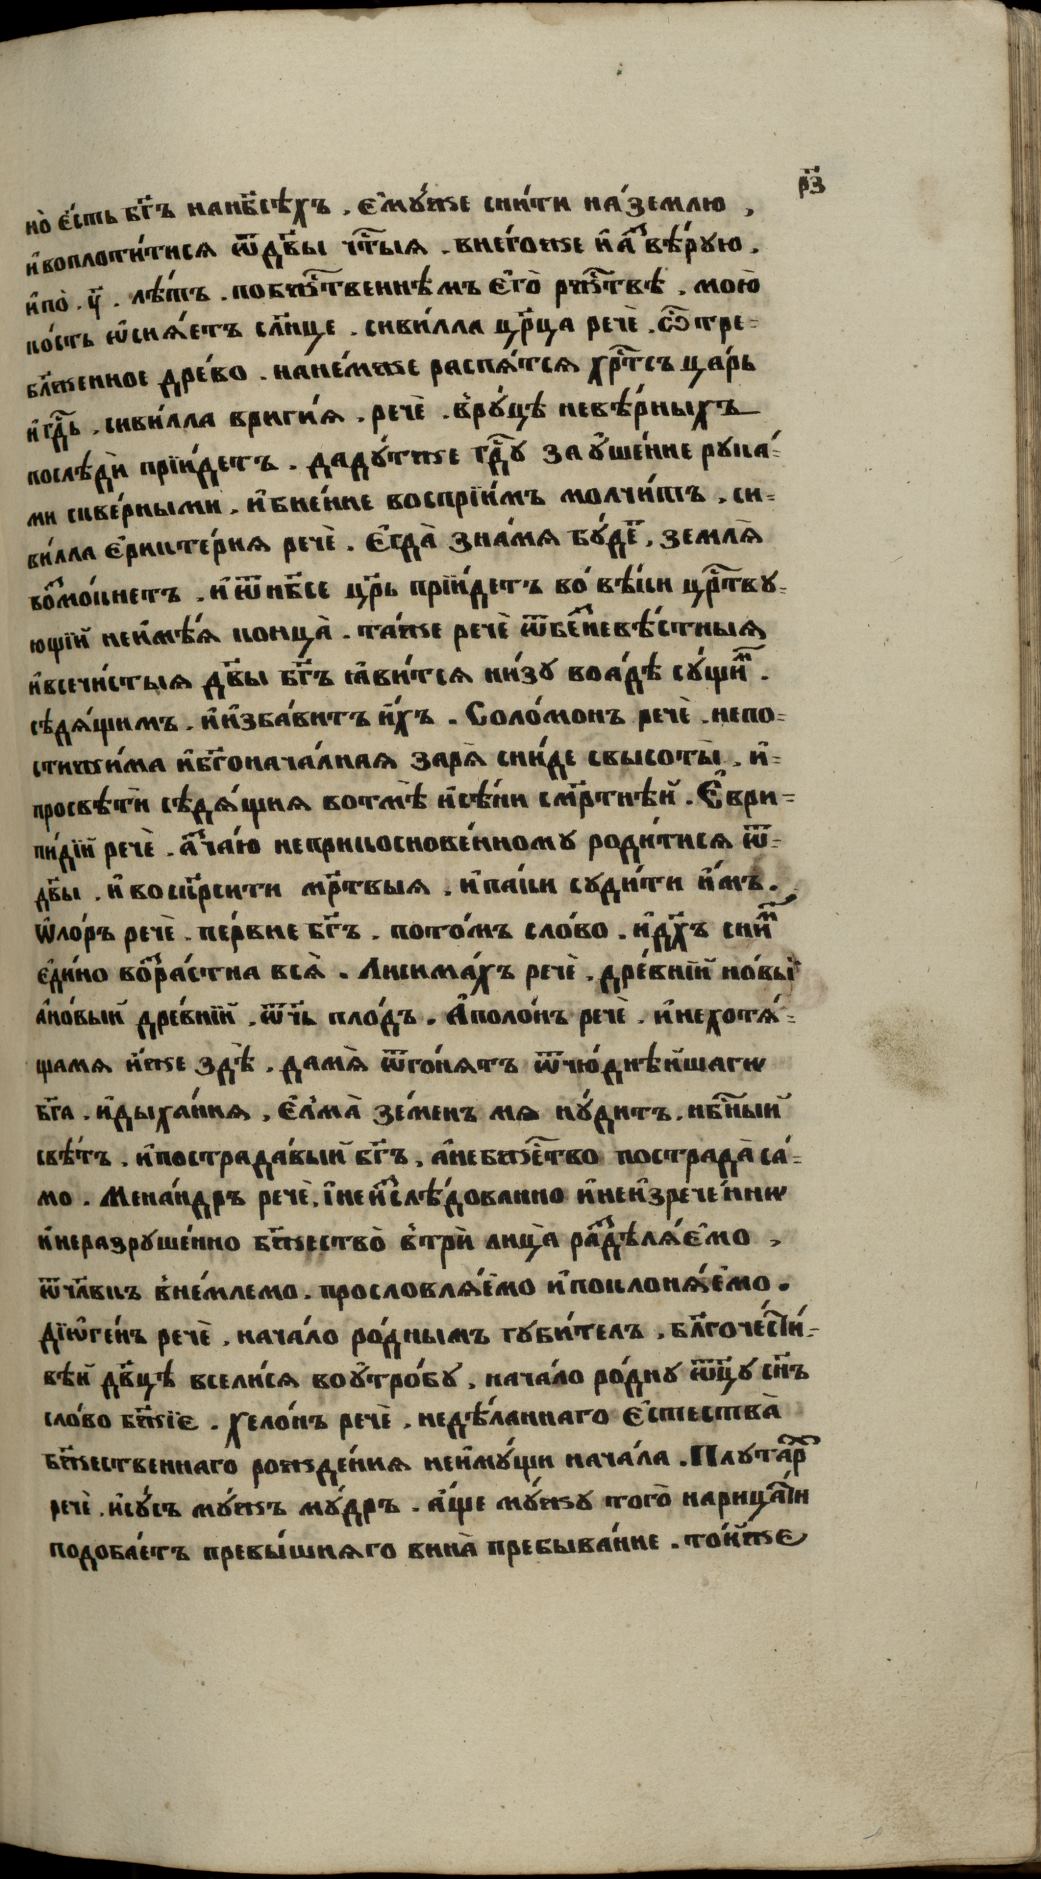 р҃з
но̀ є҆́сть бг҃ъ нанб҃сѣхъ . є҆мꙋ́же сни́ти на́землю ,
и҆воплоти́тися ѿдв҃ы чт҃ыя . внего́же и҆а҆́з вѣ́рꙋю .
и҆по̀ . ц҃ . лѣ́тъ . побж҃ственнѣмъ є҆го̀ рж҃твѣ . мою̀
ко́сть ѡ҆сия́етъ сл҃нце . сиви́лла цр҃ца речѐ . ѽ тре-
бл҃женное дре́во . нане́мже распя́тся хр҃тсъ ца́рь
и҆гд҃ь . сиви́лла вриги́я . речѐ . в̾рꙋ́цѣ невѣ́рныхъ
послѣдѝ прїи́детъ . дадꙋ́тже гд҃ꙋ заꙋ҆ше́ние рꙋка́-
ми скве́рными . и҆бие́ние воспрїи́мъ молчи́тъ . си-
ви́лла є҆рикте́рия речѐ . є҆гда̀ зна́мя бꙋ́дет , земля̀
возмо́кнетъ . и҆ѿнб҃се цр҃ь прїи́детъ во́ вѣки цр҃твꙋ-
ющїй неи҆мѣ́я конца̀ . та́же речѐ ѿбезневѣ́стныя
и҆всечи́стыя дв҃ы бг҃ъ ꙗ҆ви́тся ни́зꙋ воа́дѣ сꙋ́щим .
сѣдя́щимъ . и҆и҆зба́витъ и҆́хъ . Соло́монъ речѐ . непо-
стижи́ма и҆бг҃онача́лная заря̀ сни́де свысоты̀ . и҆-
просвѣтѝ сѣдя́щия вотмѣ̀ и҆сѣ́ни см҃ртнѣй . Є҆ври-
пи́дїй речѐ . а҆́з ча́ю неприкоснове́нномꙋ роди́тися ѿ-
дв҃ы . и҆воскр҃сити мр҃твыя . и҆паки сꙋди́ти и҆́мъ .
ѡ҆ло́ръ речѐ . пе́рвие бг҃ъ . пото́мъ сло́во . и҆дх҃ъ сним
є҆ди́но возра́стна вся̀ . Лисима́хъ речѐ . дре́внїй но́вы
а҆но́вый дре́внїй . ѿч҃ь пло́дъ . А҆поло́нъ речѐ . и҆нехотя́-
щамя и҆́же здѣ̀ . дамя̀ ѿго́нятъ ѿчю́днѣйшагѡ
бг҃а . и҆дыха́ния . є҆лма̀ зе́менъ мя нꙋ́дитъ . нб҃ный
свѣ́тъ . и҆пострада́вый бг҃ъ . а҆небж҃ество пострада̀ са́-
мо . Мена́ндръ речѐ . і҆неи҆слѣ́дованно и҆неи҆зрече́ннѡ
и҆неразрꙋше́нно бж҃ество̀ в̾трѝ лица̀ раздѣля́емо ,
ѿчл҃вкъ в̾не́млемо . прословля́емо и҆поклоня́емо .
Дїѡ҆ге́нъ речѐ . нача́ло ро́днымъ гꙋби́телъ . бл҃гочести́-
вѣй дв҃цѣ всели́ся воꙋ҆тро́бꙋ , нача́ло ро́днꙋ ѿц҃ꙋ сн҃ъ
сло́во бж҃їе . хело́нъ речѐ . недѣ́ланнаго є҆стества̀
бж҃ественнаго рожде́ния неи҆мꙋ́щи нача́ла . Плꙋта́рх
речѐ . и҆сꙋ́съ мꙋ́жъ мꙋ́дръ . а҆́ще мꙋ́жꙋ того̀ нарица́ти
подоба́етъ превы́шняго вина̀ пребыва́ние . то́йже